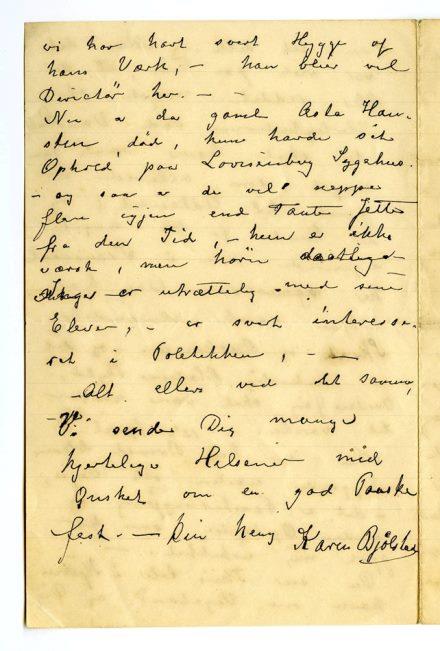 vi har havt svært Hygge af
hans Værk, – han blir vel
Directør her. – –
Nu er da gamle Asta Han-
sten død, hun havde sit
Ophold paa Lovisenberg Sygehus.
– og saa er de vel neppe
flere igjen end Tante Jette
fra den Tid, – hun er ikke
værst, men
er utrættelig med sine
Elever, – er svært interesse-
ret i Politikken, – –
– Alt ellers ved det samme,
– Vi sender Dig mange
hjertelige Hilsener med
Ønsket om en god Paaske
fest. – Din heng Karen Bjølstad